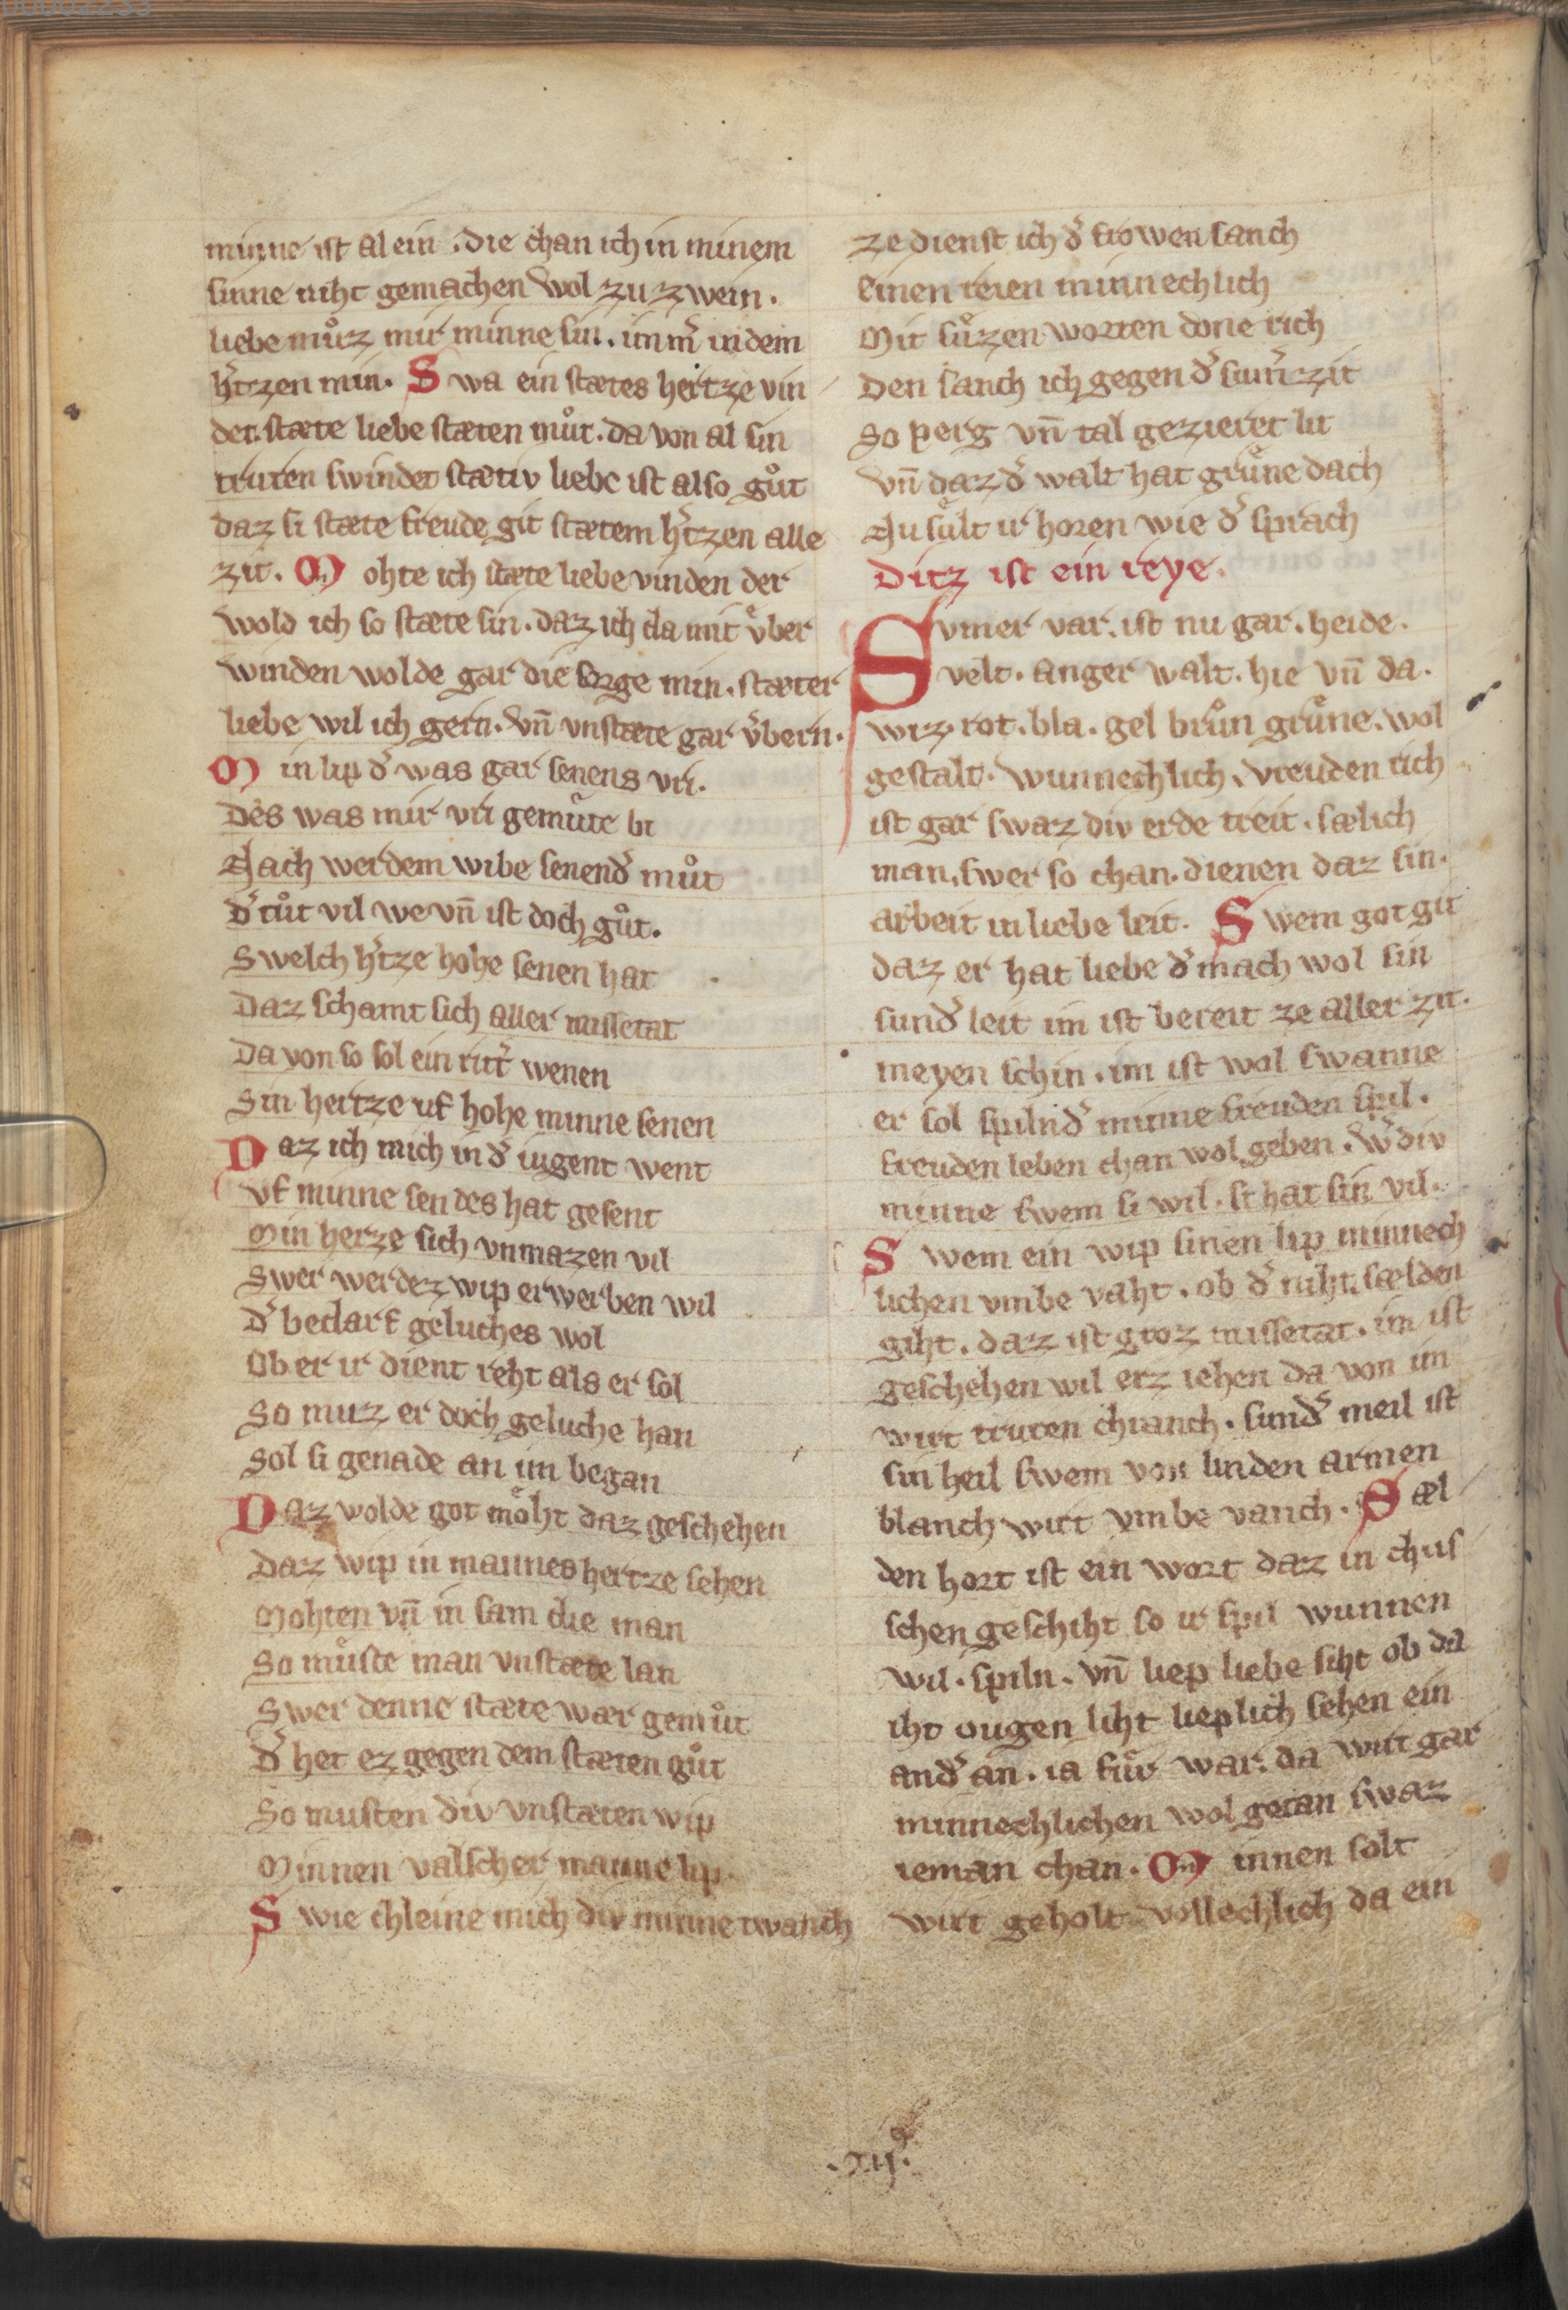 minne ist al ein . die chan ich in minem
sinne niht gemachen wol zu zwein .
liebe muͦz mir minne sin . imm̄ in dem
h̄tzen min . Swa ein stætes hertze vin
det . stæte liebe stæten muͦt . da von al sin
truren swindet stætiv liebe ist also guͦt
daz si stæte freude git stætem h̄tzen alle
zit . Mohte ich stæte liebe vinden der
wold ich so stæte sin . daz ich da mit v̊ber
winden wolde gar die sorge min . stæter
liebe wil ich gern . vn̄ vnstæte gar v̄bern .
Min lip d̄ was gar senens vri .
Des was mir vri gemuͤte bi
Nach werdem wibe senend̄ muͦt
d̄ tuͦt vil we vn̄ ist doch guͦt .
Swelch h̄tze hohe senen hat
Daz schamt sich aller missetat
Da von so sol ein ritt̄ wenen
Sin hertze uf hohe minne senen
Daz ich mich in d̄ iugent went
vf minne sen des hat gesent
Min herze sich vnmazen vil
Swer werdez wip erwerben wil
d̄ bedarf geluches wol
Ob er ir dient reht als er sol
So muz er doch geluche han
Sol si genade an im began
Daz wolde got moͤht daz geschehen
Daz wip in mannes hertze sehen
Mohten vn̄ in sam die man
So muͤste man vnstæte lan
Swer denne stæte wær gemuͦt
d̄ het ez gegen dem stæten guͦt
So musten div vnstæten wip
Minnen valscher manne lip .
Swie chleine mich div minne twanch
ze dienst ich d̄ frowen sanch
Einen reien minnechlich
Mit suͤzen worten done rich
Den sanch ich gegen d̄ sum̄zit
So perg vn̄ tal gezieret lit
vn̄ daz d̄ walt hat gruͤne dach
Nu suͤlt ir horen wie d̄ sprach
Ditz ist ein reye .
Svmer var . ist nu gar . heide .
velt . anger walt . hie vn̄ da .
wiz . rot . bla . gel bruͦn gruͤne . wol
gestalt . wunnechlich . vreuden rich
ist gar swaz div erde treit . sælich
man . swer so chan . dienen daz sin .
arbeit in liebe leit . Swem got git
daz er hat liebe d̄ mach wol sin
sund̄ leit im ist bereit ze aller zit .
meyen schin . im ist wol swanne
er sol spiln d̄ minne freuden spil .
freuden leben chan wol geben . w̄ div
minne swem si wil . si hat sin vil .
Swem ein wip sinen lip minnech
lichen vmbe vaht . ob d̄ niht . sælden
giht . daz ist groz missetat . im ist
geschehen wil erz iehen da von im
wirt truren chranch . sund̄ meil ist
sin heil swem von linden armen
blanch wirt vmbe vanch . Sæl
den hort ist ein wort daz in chus
schen geschiht so ir spil wunnen
wil . spiln . vn̄ liep liebe siht ob da
iht ougen liht lieplich sehen ein
and̄ an . ia fuͤr war . da wirt gar
minnechlichen wol getan swaz
ieman chan . Minnen solt
wirt geholt vollechlich da ein
. xij⁹ .